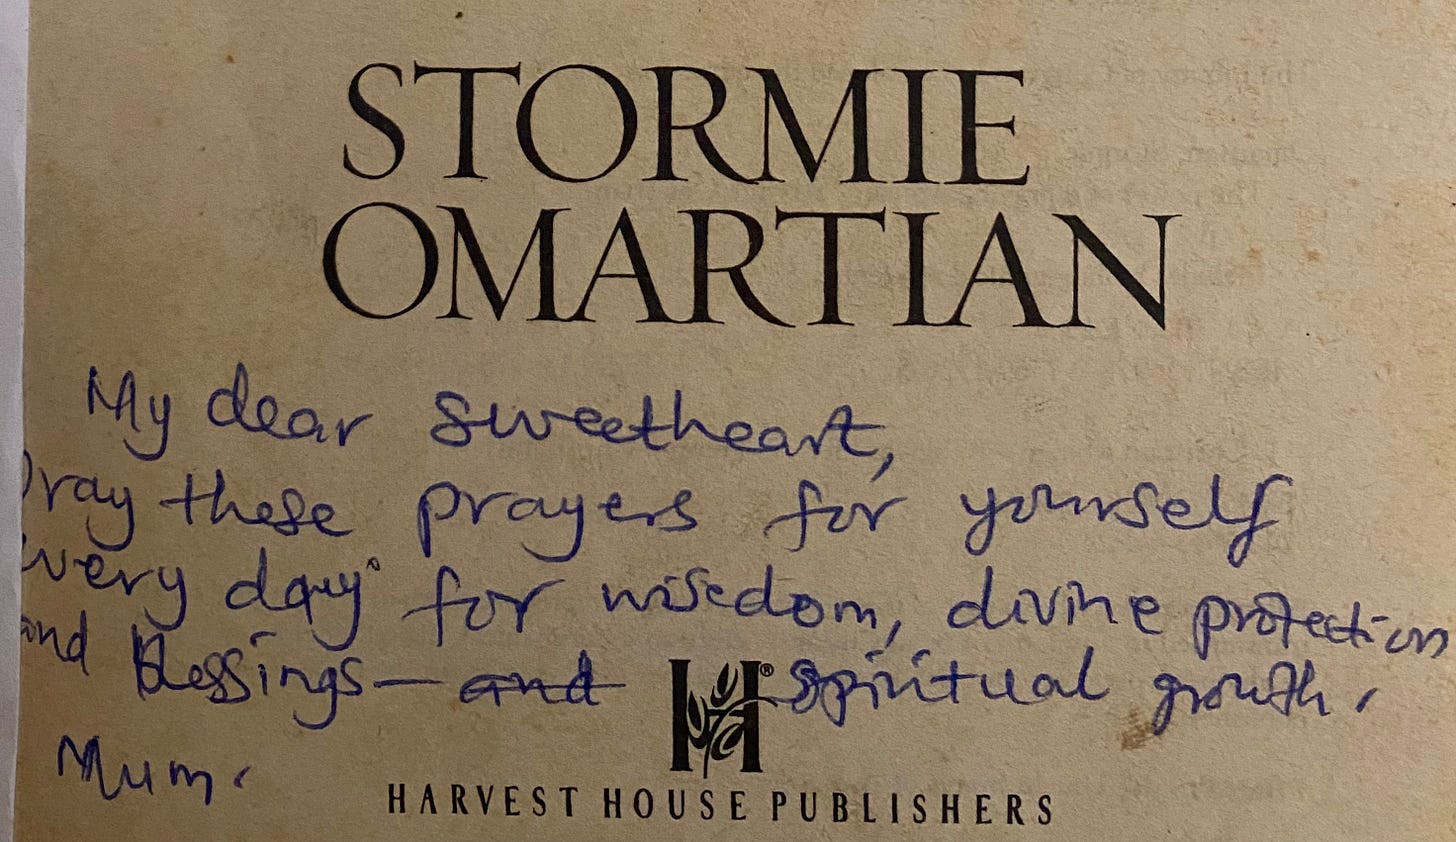 STORMIE
OMARTIAN
My dear sweetheart,
Pray these prayers for yourself
every day for wisedom, divine protection
and Blessings — and spiritual growth.
Mum.
H®
HARVEST HOUSE PUBLISHERS